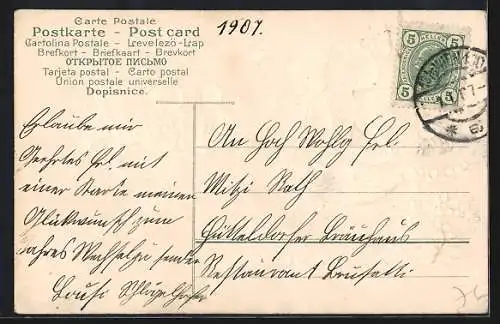 Carte Postale
Postkarte - Post card
Cartolina Postale - Levelező-Lap
Brefkort - Briefkaart - Brevkort
ОТКРЫТОЕ ПИСЬМО
Tarjeta postal - Carto postal
Union postale universelle
Dopisnice.
1907.
5 HELLER 5
5 5
Erlaube mir
Geehrtes Frl. mit
einer Karte meinen
Glückwunsch zum
Jahres Wechsel zu senden
An Hoch Wohlg Frl.
Mitzi Rath
Hütteldorfer Bräuhaus
Restaurant